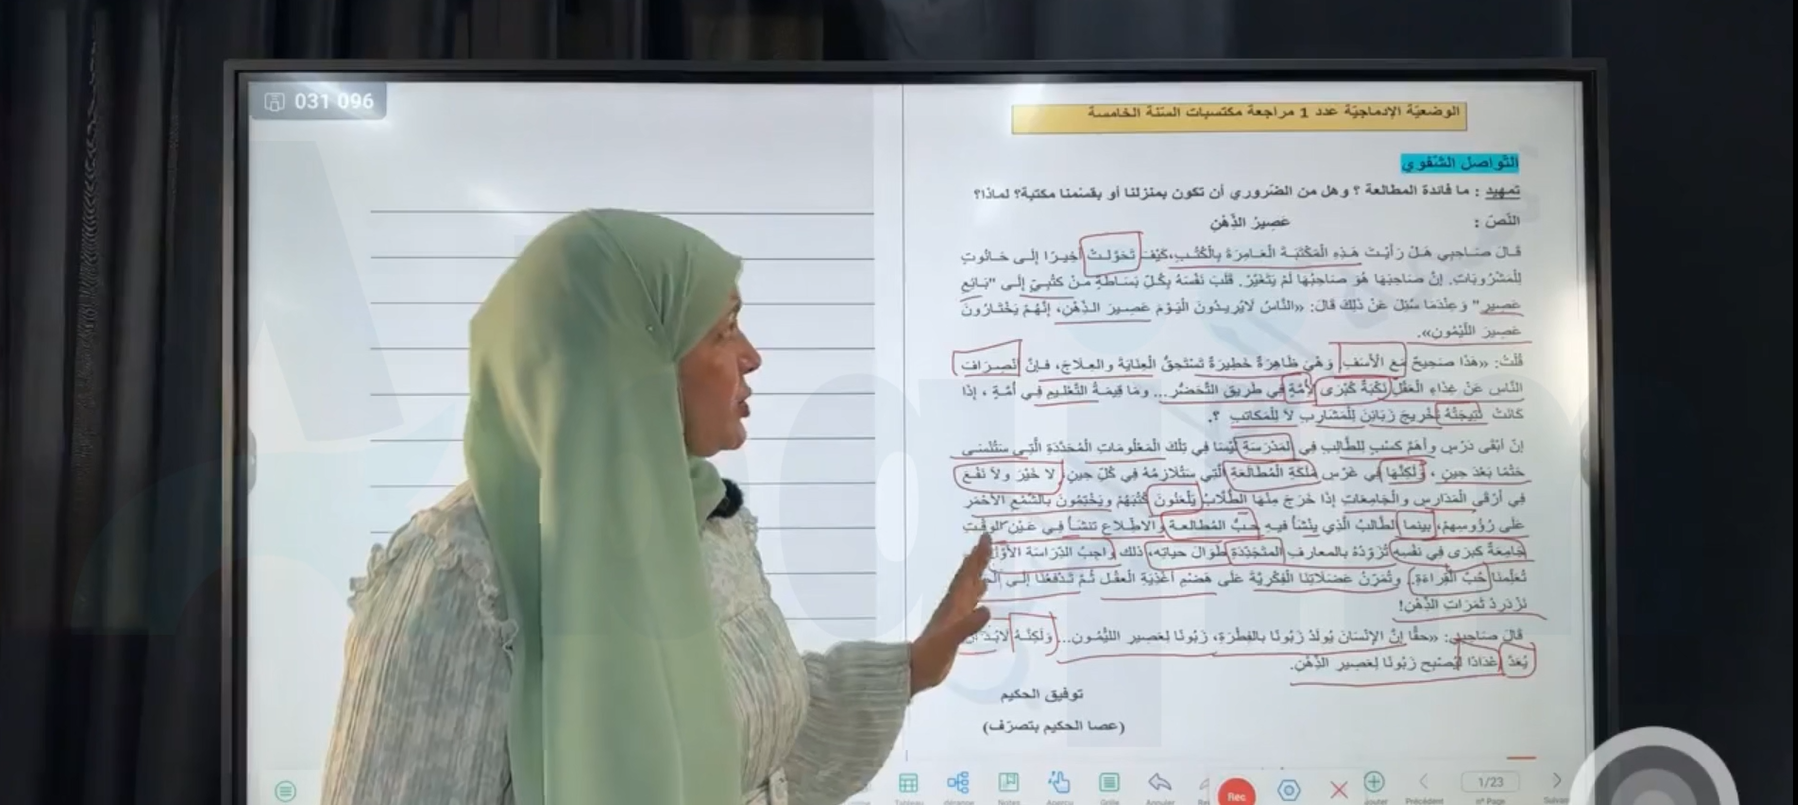 031 096
الوضعيّة الإدماجيّة عدد 1 مراجعة مكتسبات السنة الخامسة
التّواصل الشّفوي
تمهيد : ما فائدة المطالعة ؟ وهل من الضّروري أن تكون بمنزلنا أو بقسمنا مكتبة؟ لماذا؟
النّصّ : عَصِيرُ الذِّهْنِ
قَالَ صَاحِبِي هَلْ رَأَيْتَ هَذِهِ الْمَكْتَبَةَ الْعَامِرَةَ بِالْكُتُبِ، كَيْفَ تَحَوَّلَتْ أَخِيرًا إِلَى حَانُوتٍ
لِلْمَشْرُوبَاتِ. إِنَّ صَاحِبَهَا هُوَ صَاحِبُهَا لَمْ يَتَغَيَّرْ. قَلَبَ نَفْسَهُ بِكُلِّ بَسَاطَةٍ مِنْ كُتُبِيٍّ إِلَى "بَائِعِ
عَصِيرٍ" وَعِنْدَمَا سُئِلَ عَنْ ذَلِكَ قَالَ: «النَّاسُ لَا يُرِيدُونَ الْيَوْمَ عَصِيرَ الذِّهْنِ، إِنَّهُمْ يَخْتَارُونَ
عَصِيرَ اللَّيْمُونِ».
قُلْتُ: «هَذَا صَحِيحٌ مَعَ الْأَسَفِ، وَهِيَ ظَاهِرَةٌ خَطِيرَةٌ تَسْتَحِقُّ الْعِنَايَةَ وَالْعِلَاجَ، فَإِنَّ انْصِرَافَ
النَّاسِ عَنْ غِذَاءِ الْعَقْلِ لَنَكْبَةٌ كُبْرَى لِأُمَّةٍ فِي طَرِيقِ التَّحَضُّرِ... وَمَا قِيمَةُ التَّعْلِيمِ فِي أُمَّةٍ ، إِذَا
كَانَتْ نَتِيجَتُهُ تَخْرِيجَ زَبَائِنَ لِلْمَشَارِبِ لَا لِلْمَكَاتِبِ ؟.
إِنَّ أَبْقَى دَرْسٍ وَأَهَمَّ كَسْبٍ لِلطَّالِبِ فِي الْمَدْرَسَةِ لَيْسَا فِي تِلْكَ الْمَعْلُومَاتِ الْمُحَدَّدَةِ الَّتِي سَتُنْسَى
حَتْمًا بَعْدَ حِينٍ ، وَلَكِنَّهَا فِي غَرْسِ مَلَكَةِ الْمُطَالَعَةِ الَّتِي سَتُلَازِمُهُ فِي كُلِّ حِينٍ، لَا خَيْرَ وَلَا نَفْعَ
فِي أَرْقَى الْمَدَارِسِ وَالْجَامِعَاتِ إِذَا خَرَجَ مِنْهَا الطُّلَّابُ يَلْعَنُونَ كُتُبَهُمْ وَيَخْتِمُونَ بِالشَّمْعِ الْأَحْمَرِ
عَلَى رُؤُوسِهِمْ، بَيْنَمَا الطَّالِبُ الَّذِي يَنْشَأُ فِيهِ حُبُّ الْمُطَالَعَةِ وَالِاطِّلَاعِ تَنْشَأُ فِي عَيْنِ الْوَقْتِ
جَامِعَةٌ كُبْرَى فِي نَفْسِهِ تُزَوِّدُهُ بِالْمَعَارِفِ الْمُتَجَدِّدَةِ طَوَالَ حَيَاتِهِ، ذَلِكَ وَاجِبُ الدِّرَاسَةِ
تُعَلِّمُنَا حُبَّ الْقِرَاءَةِ، وَتُمَرِّنُ عَضَلَاتِنَا الْفِكْرِيَّةَ عَلَى هَضْمِ أَغْذِيَةِ الْعَقْلِ ثُمَّ تَدْفَعُنَا إِلَى
نَزْدَرِدُ ثَمَرَاتِ الذِّهْنِ!
قَالَ صَاحِبِي: «حَقًّا إِنَّ الْإِنْسَانَ يُولَدُ زَبُونًا بِالْفِطْرَةِ، زَبُونًا لِعَصِيرِ اللَّيْمُونِ... وَلَكِنَّهُ لَابُدَّ أَنْ
يُعَدَّ إِعْدَادًا لِيُصْبِحَ زَبُونًا لِعَصِيرِ الذِّهْنِ.
توفيق الحكيم
(عصا الحكيم بتصرّف)
Tableau
Notes
Aperçu
Grille
Annuler
Rec
Ajouter
Précédent
1/23
n° Page
Suivant